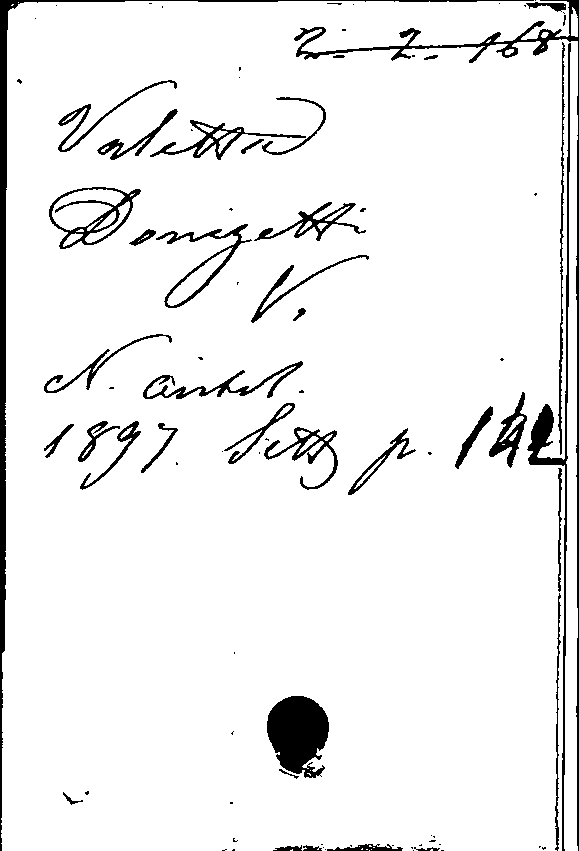 2. 2. 168
Valetta
Donizetti
V.
N. antol.
1897. Sett p. 142